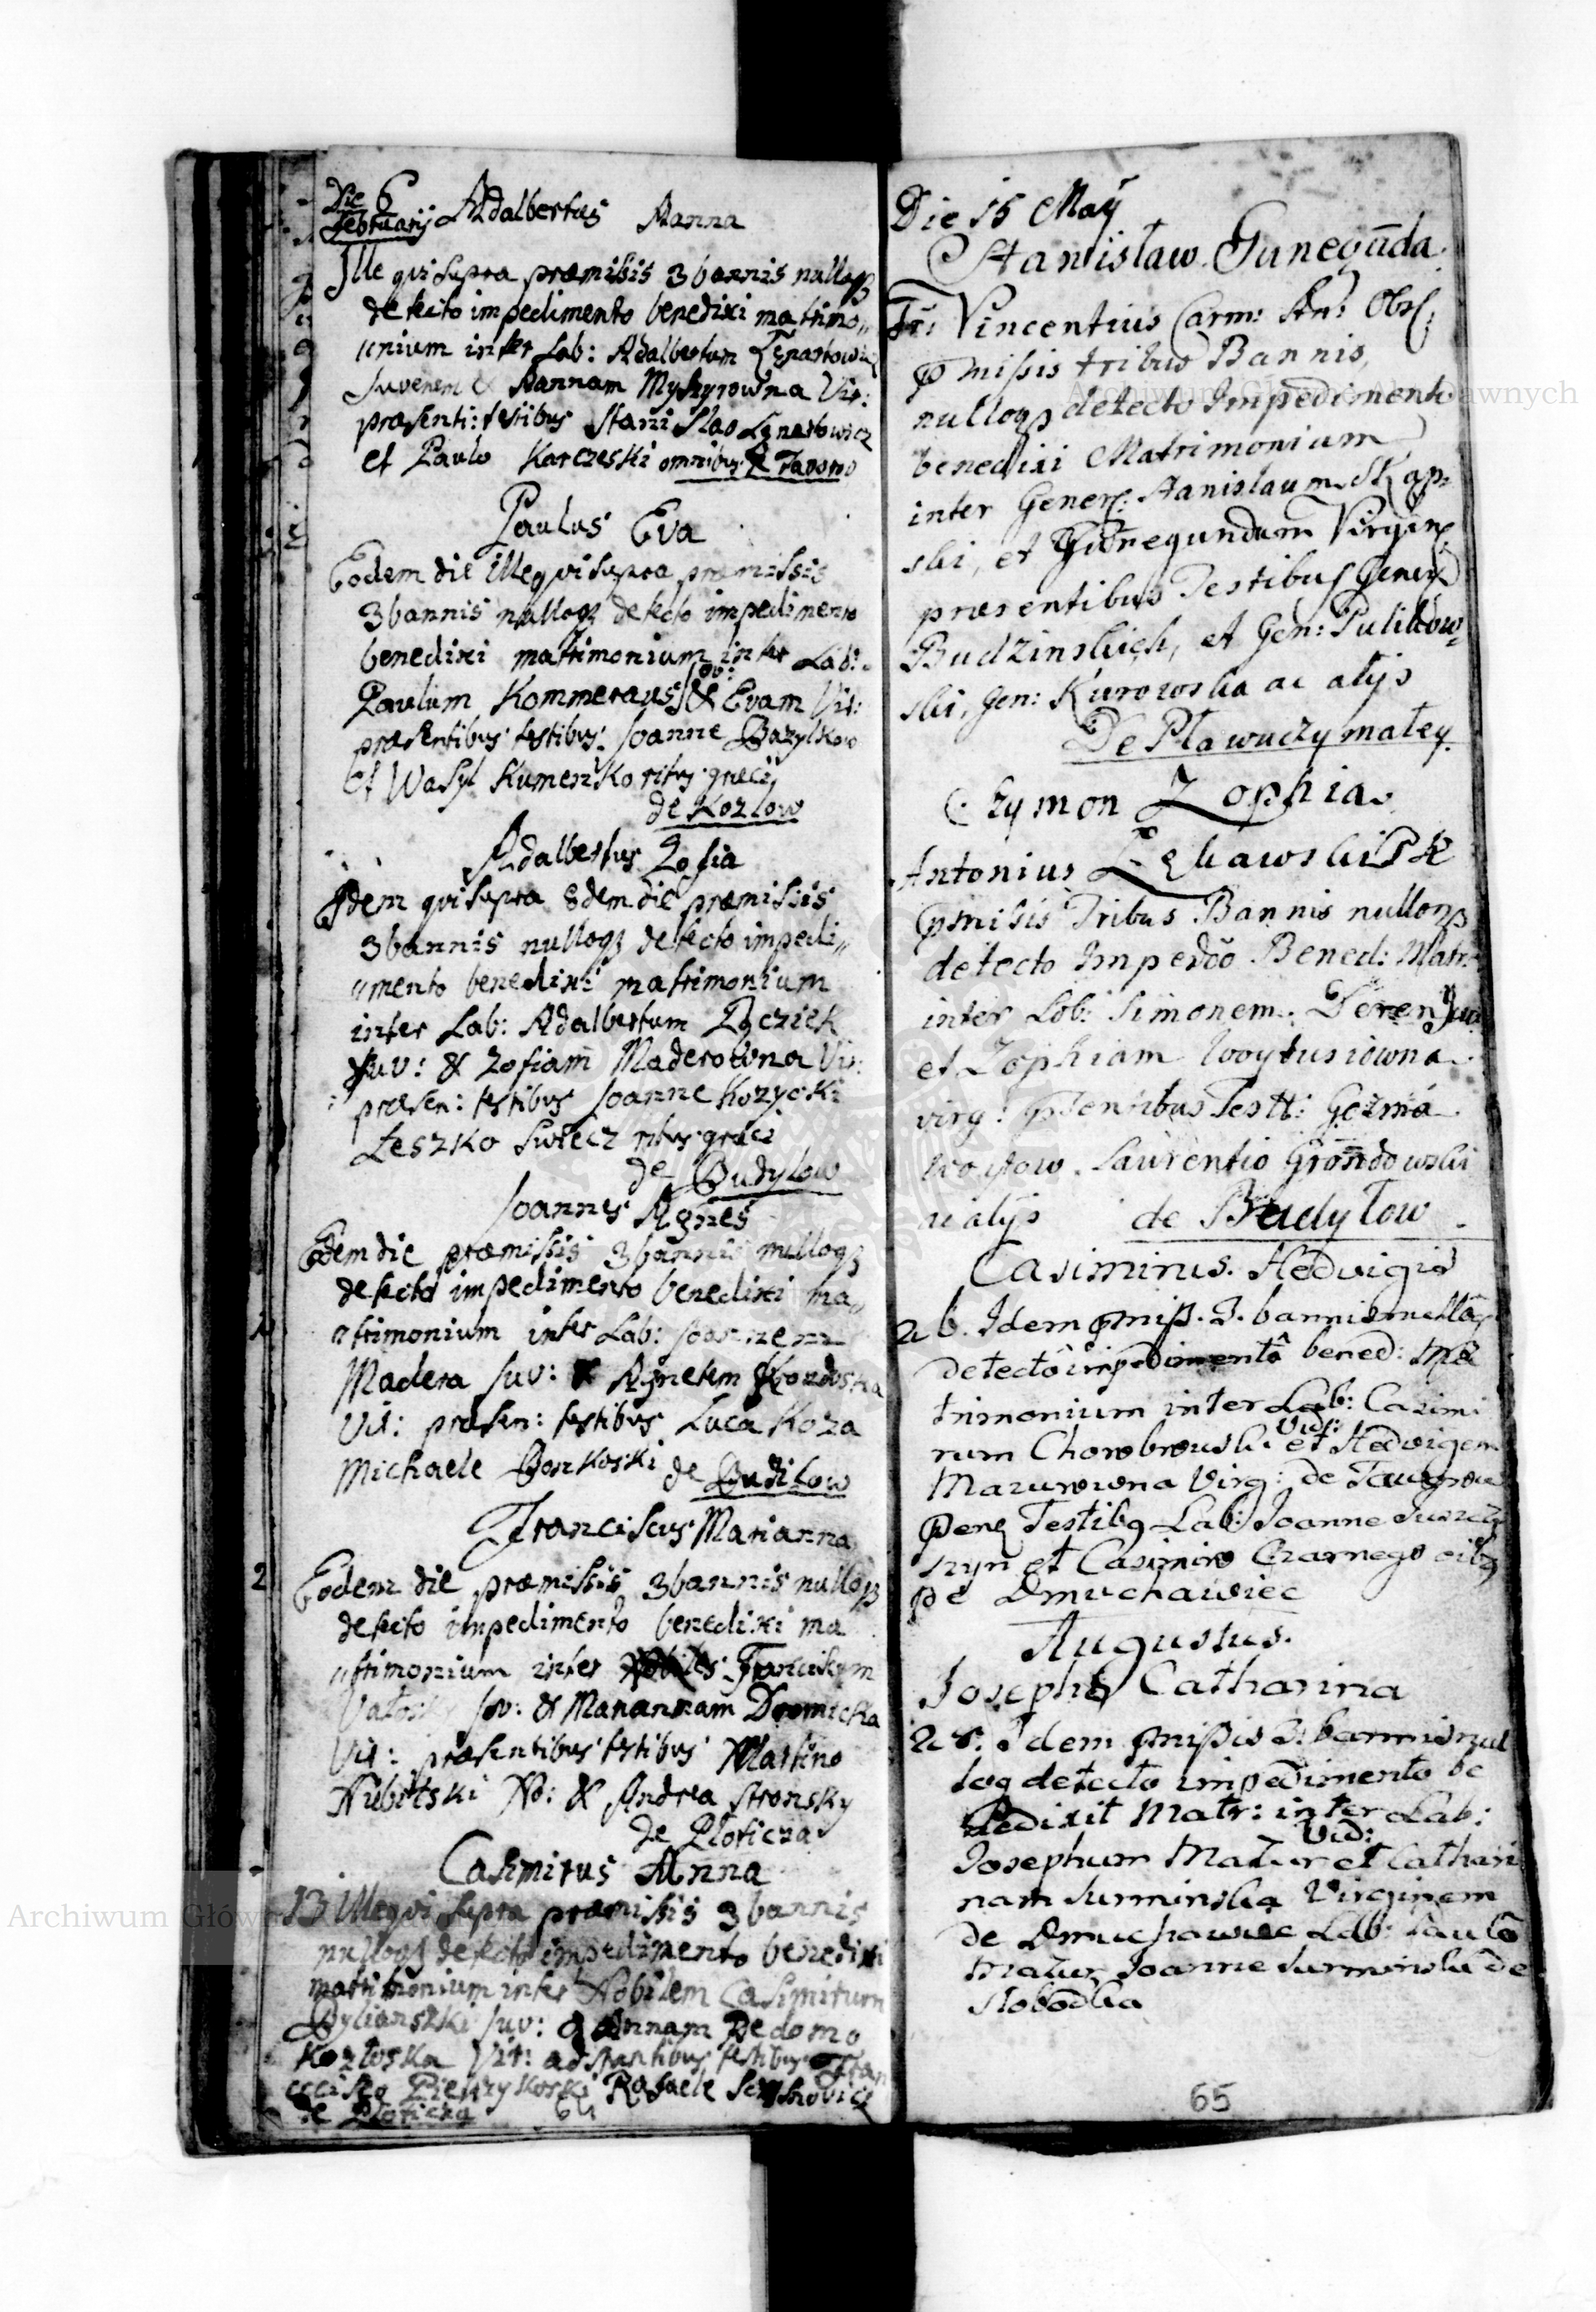 Die 6
Februarij Adalbertus Aanna
Ille qui supra præmissis 3 bannis nulloqz
detecto impedimento benedixi matrimo„
„nium inter Lab: Adalbertum
Juvenem & Aannam Myszyrowna Vir:
præsenti: testibus Stanislao Lenartowicz
et Paulo Karczeski omnibus
Paulus Eva
Eodem die ille qui supra præmissis
3 bannis nulloqz detecto impedimento
benedixi matrimonium inter Lab:
Paulum Kommeraus & Evam Vir:
præsentibus testibus Joanne Bazylkow
et Wasyl Kumerzko ritus græci
de Kozlow
Adalbertus Zofia
Idem qui supra Edem die præmissis
3 bannis nulloqz detecto impedi„
„mento benedixi matrimonium
inter Lab: Adalbertum
Juv: & Zofiam Maderowna Vir:
præsen: testibus Joanne Kozycki
Leszko Swiecz ritus græci
de Budylow
Joannes Agnes
Edem die præmissis 3 bannis nulloqz
detecto impedimento benedixi ma„
„trimonium inter Lab: Joannem
Madera Juv: & Agnetem
Vir: præsen: testibus Luca Koza
Michaele Boszkoski de Budilow
Franciscus Marianna
2 Eodem die præmissis 3 bannis nulloqz
detecto impedimento benedixi ma
„trimonium inter Franciscum
Juv: & Mariannam Dromicka
Vir: præsentibus testibus Martino
Nubitski No: & Andrea Stronsky
de Ploticza
Casimirus Anna
13 Ille qui supra præmissis 3 bannis
nulloqz detecto impedimento benedixi
matrimonium inter Nobilem Casimirum
Bylianszki Juv: & Annam de domo
Kozloska Vir: adstantibus testibus Fran
ccisco Pietrzykoski Rafaele
de Ploticza 64
Die 15 Maij
Stanisław. Gunegunda
Fr: Vincentius Carm: An: Obs:
pmissis tribus Bannis,
nulloqz detecto Impedimento
benedixi Matrimonium
inter Geners: Stanislaum Skap„
ski, et Gunegundam Virgin
præsentibus Testibus Gener
Budzinskich, et Gen: Pulikow„
ski, Gen: Kurowska ac alijs
De Pławuczy małey.
Szymon Zophia
Antonius Łękawski
pmisis Tribus Bannis nulloqz
detecto Impedo Bened: Matr:
inter Lob: Simonem
et Zophiam Woytusiowna
virg: psentibus Testt:
Woytow. Laurentio Grondowski
ac alijs de Budyłow
Casimirus. Hedvigis
26. Idem pmiss. 3. bannis nulloq
detecto impedimento bened: Ma
trimonium inter Lab: Casimi
rum Chorobrowski Vid: et Hedvigem
Mazurowna Virg: de Taurow
Testibq Lab: Joanne
szyn et Casimiro Czarnego oibq
de Dmuchawiec
Augustus.
Joseph, Catharina
28. Idem pmissis 3: bannis nul
loq detecto impedimento be
nedixit Matr: inter Lab:
Josephum Mazur Vid: et Cathari
nam Surminska Virginem
de Dmuchawiec Lab: Paulo
Mazur Joanne Surminski de
Slobodka
65
Archiwum Główne Akt Dawnych
Archiwum Główne